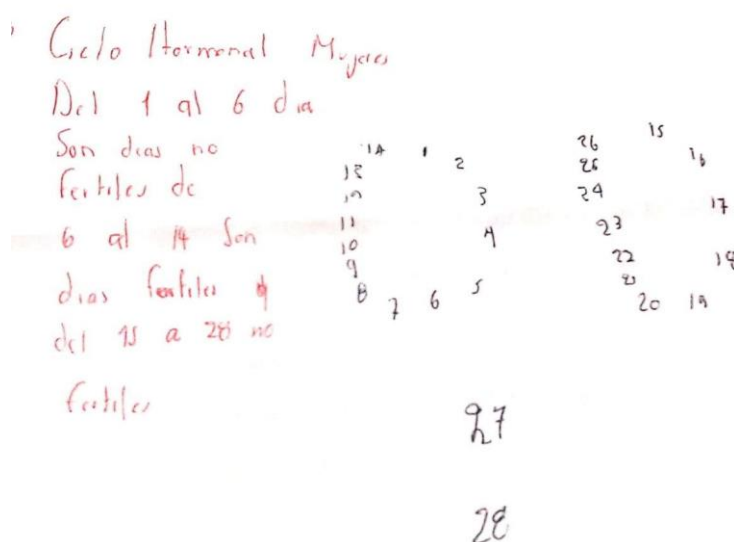 Ciclo Hormonal Mujeres
Del 1 al 6 dia
Son dias no
fertiles de
6 al 14 Son
dias fertiles y
del 15 a 28 no
fertiles
14 1 2 3 4 5 6 7 8 9 10 11 12 13
15 16 17 18 19 20 21 22 23 24 25 26
27
28